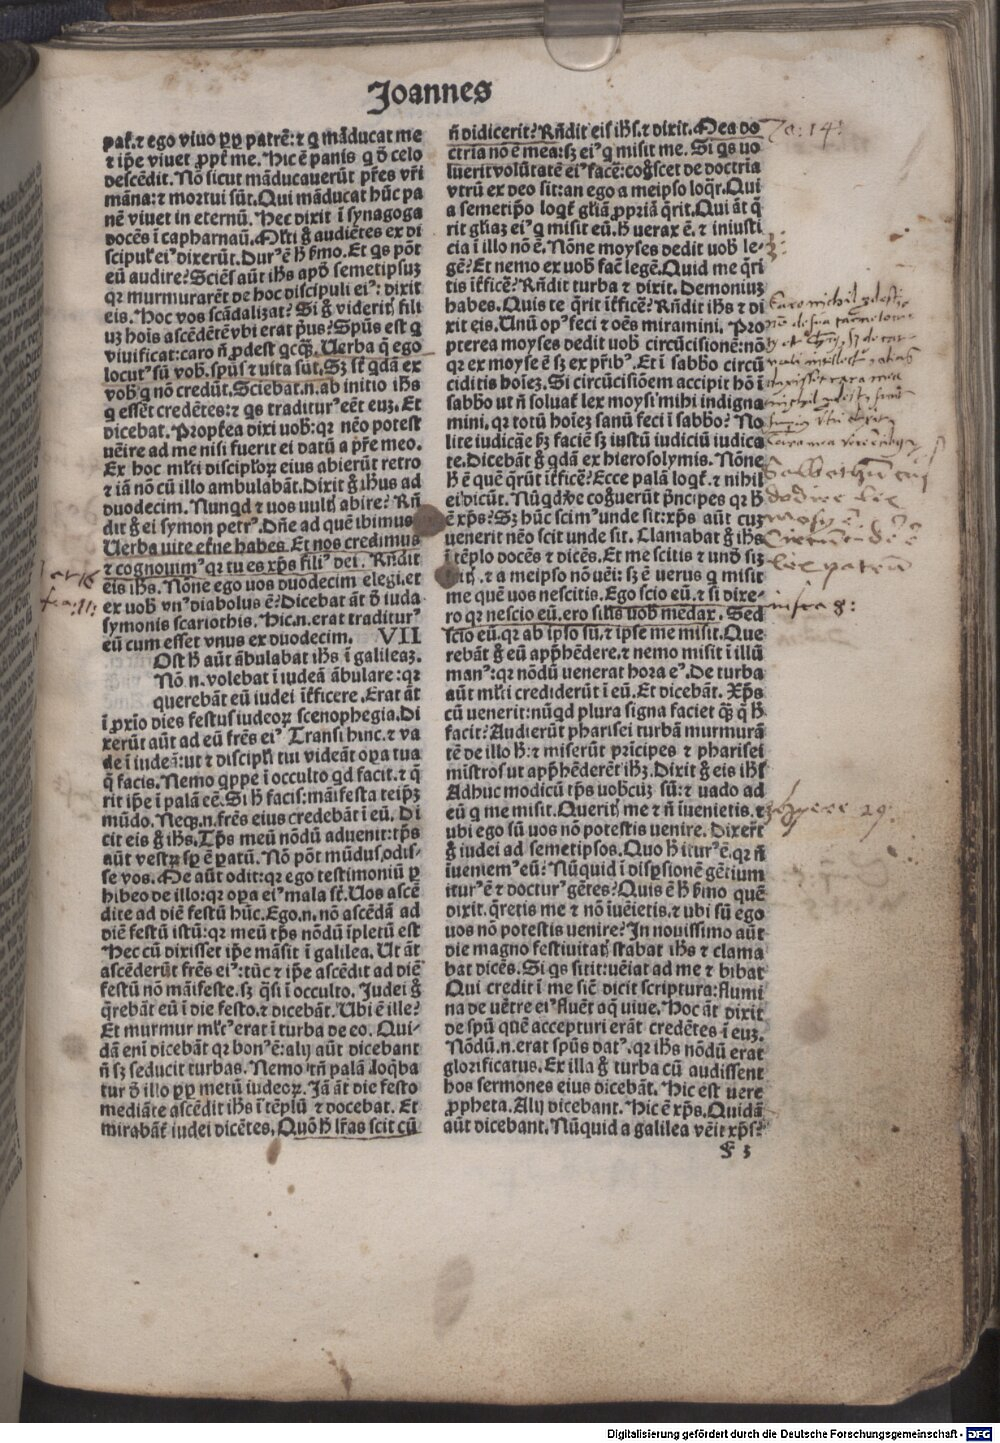 Joannes
pat̄.⁊ ego viuo ꝓꝑ patrē:⁊ q̇ mãducat me
⁊ ip̄e viuet ꝓpt̄ me. Hic ē panis q̇ d̄ celo
descēdit. Nõ sicut mãducauerūt pr̄es vr̄i
mãna:⁊ mortui sūt. Qui mãducat hūc pa
nē viuet in eternū. Hec dixit ī synagoga
docēs ī capharnaū. Ml̄ti g̊ audiētes ex di
scipul̄ eiꝰ dixerūt. Durꝰ ē h̄ s̄mo. Et qs põt
eū audire? Sciēs aūt ih̄s apd̄ semetipsuꝫ
qꝛ murmurarēt de hoc discipuli eiꝰ: dixit
eis. Hoc vos scãdalizat? Si g̊ videritꝭ fili
uꝫ hoīs ascēdētē vbi erat priꝰ? Spūs est q̇
viuificat:caro ñ ꝓdest qc̄qꝫ. Uerba q̄ ego
locutꝰ sū vob̄. spūs ⁊ uita sūt. Sꝫ st̄ qdã ex
vob̄ q̇ nõ credūt. Sciebat.n. ab initio ih̄s
q̇ essēt credētes:⁊ qs traditurꝰ eēt euꝫ. Et
dicebat. Propt̄ea dixi uob̄: qꝛ nēo potest
uēire ad me nisi fuerit ei datū a pr̄e meo.
Ex hoc ml̄ti discipl̄oꝝ eius abierūt retro
⁊ iã nõ cū illo ambulabãt. Dixit g̊ ih̄us ad
duodecim. Nunqd ⁊ uos uultꝭ abire? Rñ
dit g̊ ei symon petrꝰ. Dñe ad quē ibimus
Uerba uite et̄ne habes. Et nos credimus
⁊ cognouimꝰ qꝛ tu es xp̄s filiꝰ dei. Rñdit
eis ih̄s. Nõne ego uos duodecim elegi.et
ex uob̄ vnꝰ diabolus ē? Dicebat āt d̄ iuda
symonis scariothis. Hic.n. erat traditurꝰ
eū cum esset vnus ex duodecim. VII
Ost h̄ aūt ãbulabat ih̄s ī galileaꝫ.
Nõ.n. volebat ī iudeã ãbulare:qꝛ
querebãt eū iudei īt̄ficere. Erat āt
ī ꝓxīo dies festus iudeoꝝ scenophegia. Di
xerūt aūt ad eū fr̄es eiꝰ Transi hinc.⁊ va
de ī iudeã:ut ⁊ discipl̄i tui videãt oꝑa tua
q̄ facis. Nemo q̇ppe ī occulto qd facit.⁊ q̄
rit ip̄e ī palã eē. Si h̄ facis: mãifesta teip̄ꝫ
mūdo. Neqꝫ.n. fr̄es eius credebãt ī eū. Di
cit eis g̊ ih̄s. Tp̄s meū nõdū aduenit:tp̄s
aūt vestrꝝ sꝑ ē ꝑatū. Nõ põt mūdus odis-
se vos. Me aūt odit:qꝛ ego testimoniū ꝑ
hibeo de illo:qꝛ oꝑa eiꝰ mala st̄. Uos ascē
dite ad diē festū hūc. Ego.n. nõ ascēdã ad
diē festū istū: qꝛ meū tp̄s nõdū īpletū est
Hec cū dixisset ip̄e mãsit ī galilea. Ut āt
ascēderūt fr̄es eiꝰ:tūc ⁊ ip̄e ascēdit ad diē
festū nõ mãifeste. sꝫ q̄si ī occulto. Judei g̊
q̄rebãt eū ī die festo.⁊ dicebãt. Ubi ē ille?
Et murmur ml̄tꝰ erat ī turba de eo. Qui-
dã eni dicebãt qꝛ bonꝰ ē:alij aūt dicebant
ñ sꝫ seducit turbas. Nemo tñ palã loq̄ba
tur d̄ illo ꝓꝑ metū iudeoꝝ. Jã āt die festo
mediãte ascēdit ih̄s ī tēplū ⁊ docebat. Et
mirabãt̄ iudei dicētes. Quõ h̄ lr̄as scit cū
ñ didicerit? Rñdit eis ih̄s.⁊ dixit. Mea do
ctrīa nõ ē mea: sꝫ eiꝰ q̇ misit me. Si qs uo
luerit volūtatē eiꝰ facē:cog̊scet de doctrīa
vtrū ex deo sit:an ego a meipso loq̄r. Qui
a semetip̄o loqt̄ gl̄iã ꝓpriã q̄rit. Qui āt q̄
rit gl̄iaꝫ eiꝰ q̇ misit eū. h̄ uerax ē. ⁊ iniusti
cia ī illo nõ ē. Nõne moyses dedit uob̄ le-
gē? Et nemo ex uob̄ fac̄ legē. Quid me q̄ri
tis īt̄ficē? Rñdit turba ⁊ dixit. Demoniuꝫ
habes. Quis te q̄rit īt̄ficē? Rñdit ih̄s ⁊ di
xit eis. Unū opꝰ feci ⁊ oēs miramini. Pro
pterea moyses dedit uob̄ circūcisionē:nõ
qꝛ ex moyse ē sꝫ ex pr̄ibꝰ. Et ī sabb̄o circū
ciditis hoīeꝫ. Si circūcisiõem accipit hõ ī
sabb̄o ut ñ soluat̄ lex moysi mihi indigna
mini. qꝛ totū hoīeꝫ sanū feci ī sabb̄o? No
lite iudicãe s̄ꝫ faciē sꝫ iustū iudiciū iudica
te. Dicebãt g̊ qdã ex hierosolymis. Nõne
h̄ ē quē q̄rūt īt̄ficē? Ecce palã loqt̄.⁊ nihil
ei dicūt. Nūqd v̄e cog̊uerūt pr̄ncipes qꝛ h̄
ē xp̄s? Sꝫ hūc scimꝰ unde sit:xp̄s aūt cuꝫ
uenerit nēo scit unde sit. Clamabat g̊ ih̄s
ī tēplo docēs ⁊ dicēs. Et me scitis ⁊ und̄ siꝫ
.⁊ a meipso nõ uēi: sꝫ ē uerus q̇ misit
me quē uos nescitis. Ego scio eū.⁊ si dixe-
ro qꝛ nescio eū.ero sil̄is uob̄ mēdax. Sed
scio eū. qꝛ ab ipso sū.⁊ ipse me misit. Que
rebãt g̊ eū app̄hēdere.⁊ nemo misit ī illū
manꝰ:qꝛ nõdū uenerat hora eꝰ. De turba
aūt ml̄ti crediderūt ī eū. Et dicebãt. Xp̄s
cū uenerit:nūqd plura signa faciet q̄ꝫ q̄ h̄
facit? Audierūt pharisei turbã murmurã
tē de illo h̄:⁊ miserūt prīcipes ⁊ pharisei
mīstros ut app̄hēderēt ih̄ꝫ. Dixit g̊ eis ih̄s
Adhuc modicū tp̄s uob̄cuꝫ sū:⁊ uado ad
eū q̇ me misit. Queritꝭ me ⁊ ñ īuenietis.⁊
ubi ego sū uos nõ potestis uenire. Dixer̄t
g̊ iudei ad semetipsos. Quo h̄ iturꝰ ē.qꝛ ñ
īueniemꝰ eū? Nūquid ī disꝑsionē gētium
iturꝰ ē ⁊ docturꝰ gētes? Quis ē h̄ s̄mo quē
dixit. q̄retis me ⁊ nõ īuēietis.⁊ ubi sū ego
uos nõ potestis uenire? In nouissimo aūt
die magno festiuitatꝭ stabat ih̄s ⁊ clama
bat dicēs. Si qs sitit:uēiat ad me ⁊ bibat
Qui credit ī me sic̄ dicit scriptura:flumi
na de uētre eiꝰ fluēt aq̄ viue. Hoc āt dixit
de spū quē accepturi erãt credētes ī euꝫ.
Nõdū.n. erat spūs datꝰ. qꝛ ih̄s nõdū erat
glorificatus. Ex illa g̊ turba cū audissent
hos sermones eius dicebãt. Hic est uere
ꝓpheta. Alij dicebant. Hic ē xp̄s. Quidã
aūt dicebant. Nūquid a galilea vēit xp̄s?
Jo: 14:
infra 8:
29:
Digitalisierung gefördert durch die Deutsche Forschungsgemeinschaft - DFG